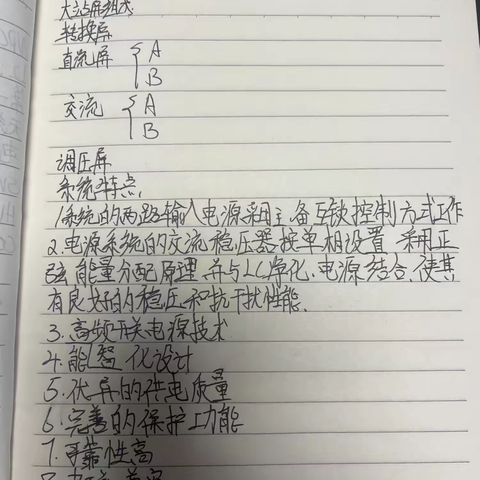 大站屏组成
转换屏
直流屏 { A
B
交流 { A
B
调压屏
系统特点
1.系统的两路输入电源采用主、备互锁控制方式工作
2.电源系统的交流稳压器按单相设置 采用正
弦能量分配原理,并与LC净化、电源结合,使其
有良好的稳压和抗干扰性能.
3.高频开关电源技术
4.能智化设计
5.优异的供电质量
6.完善的保护功能
7.可靠性高